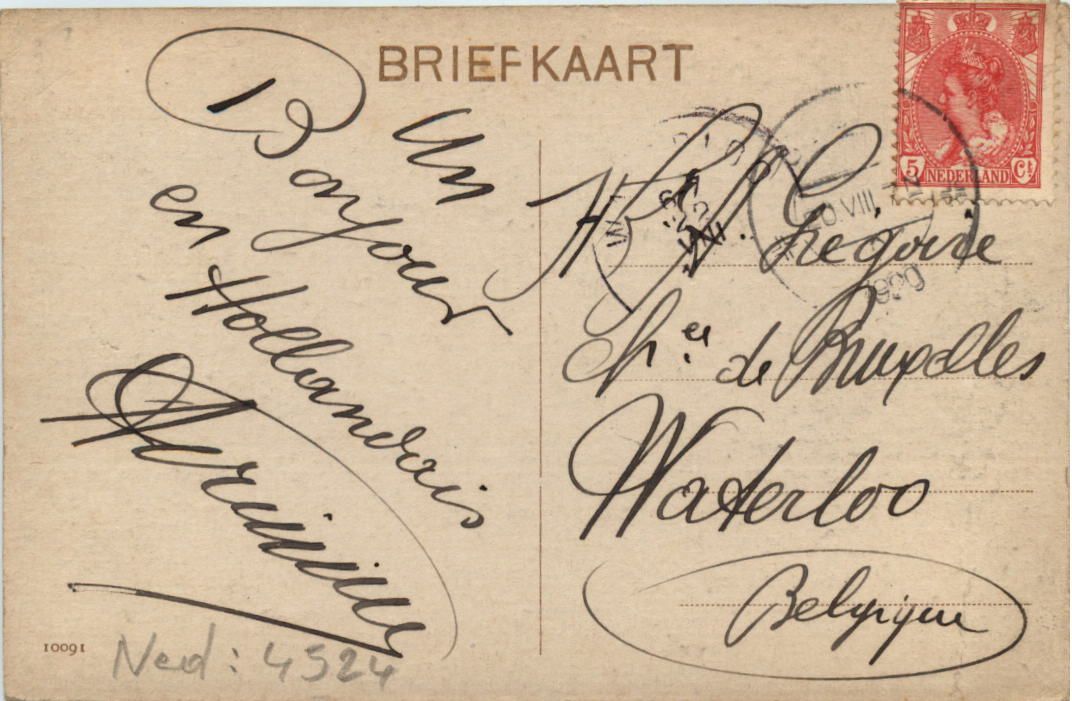 BRIEFKAART
Un
Bonjour
en Hollandais
10091
Ned: 4524
Grégoire
Ch.ée de Bruxelles
Waterloo
Belgique
5 NEDERLAND Ct
20 VIII
1920